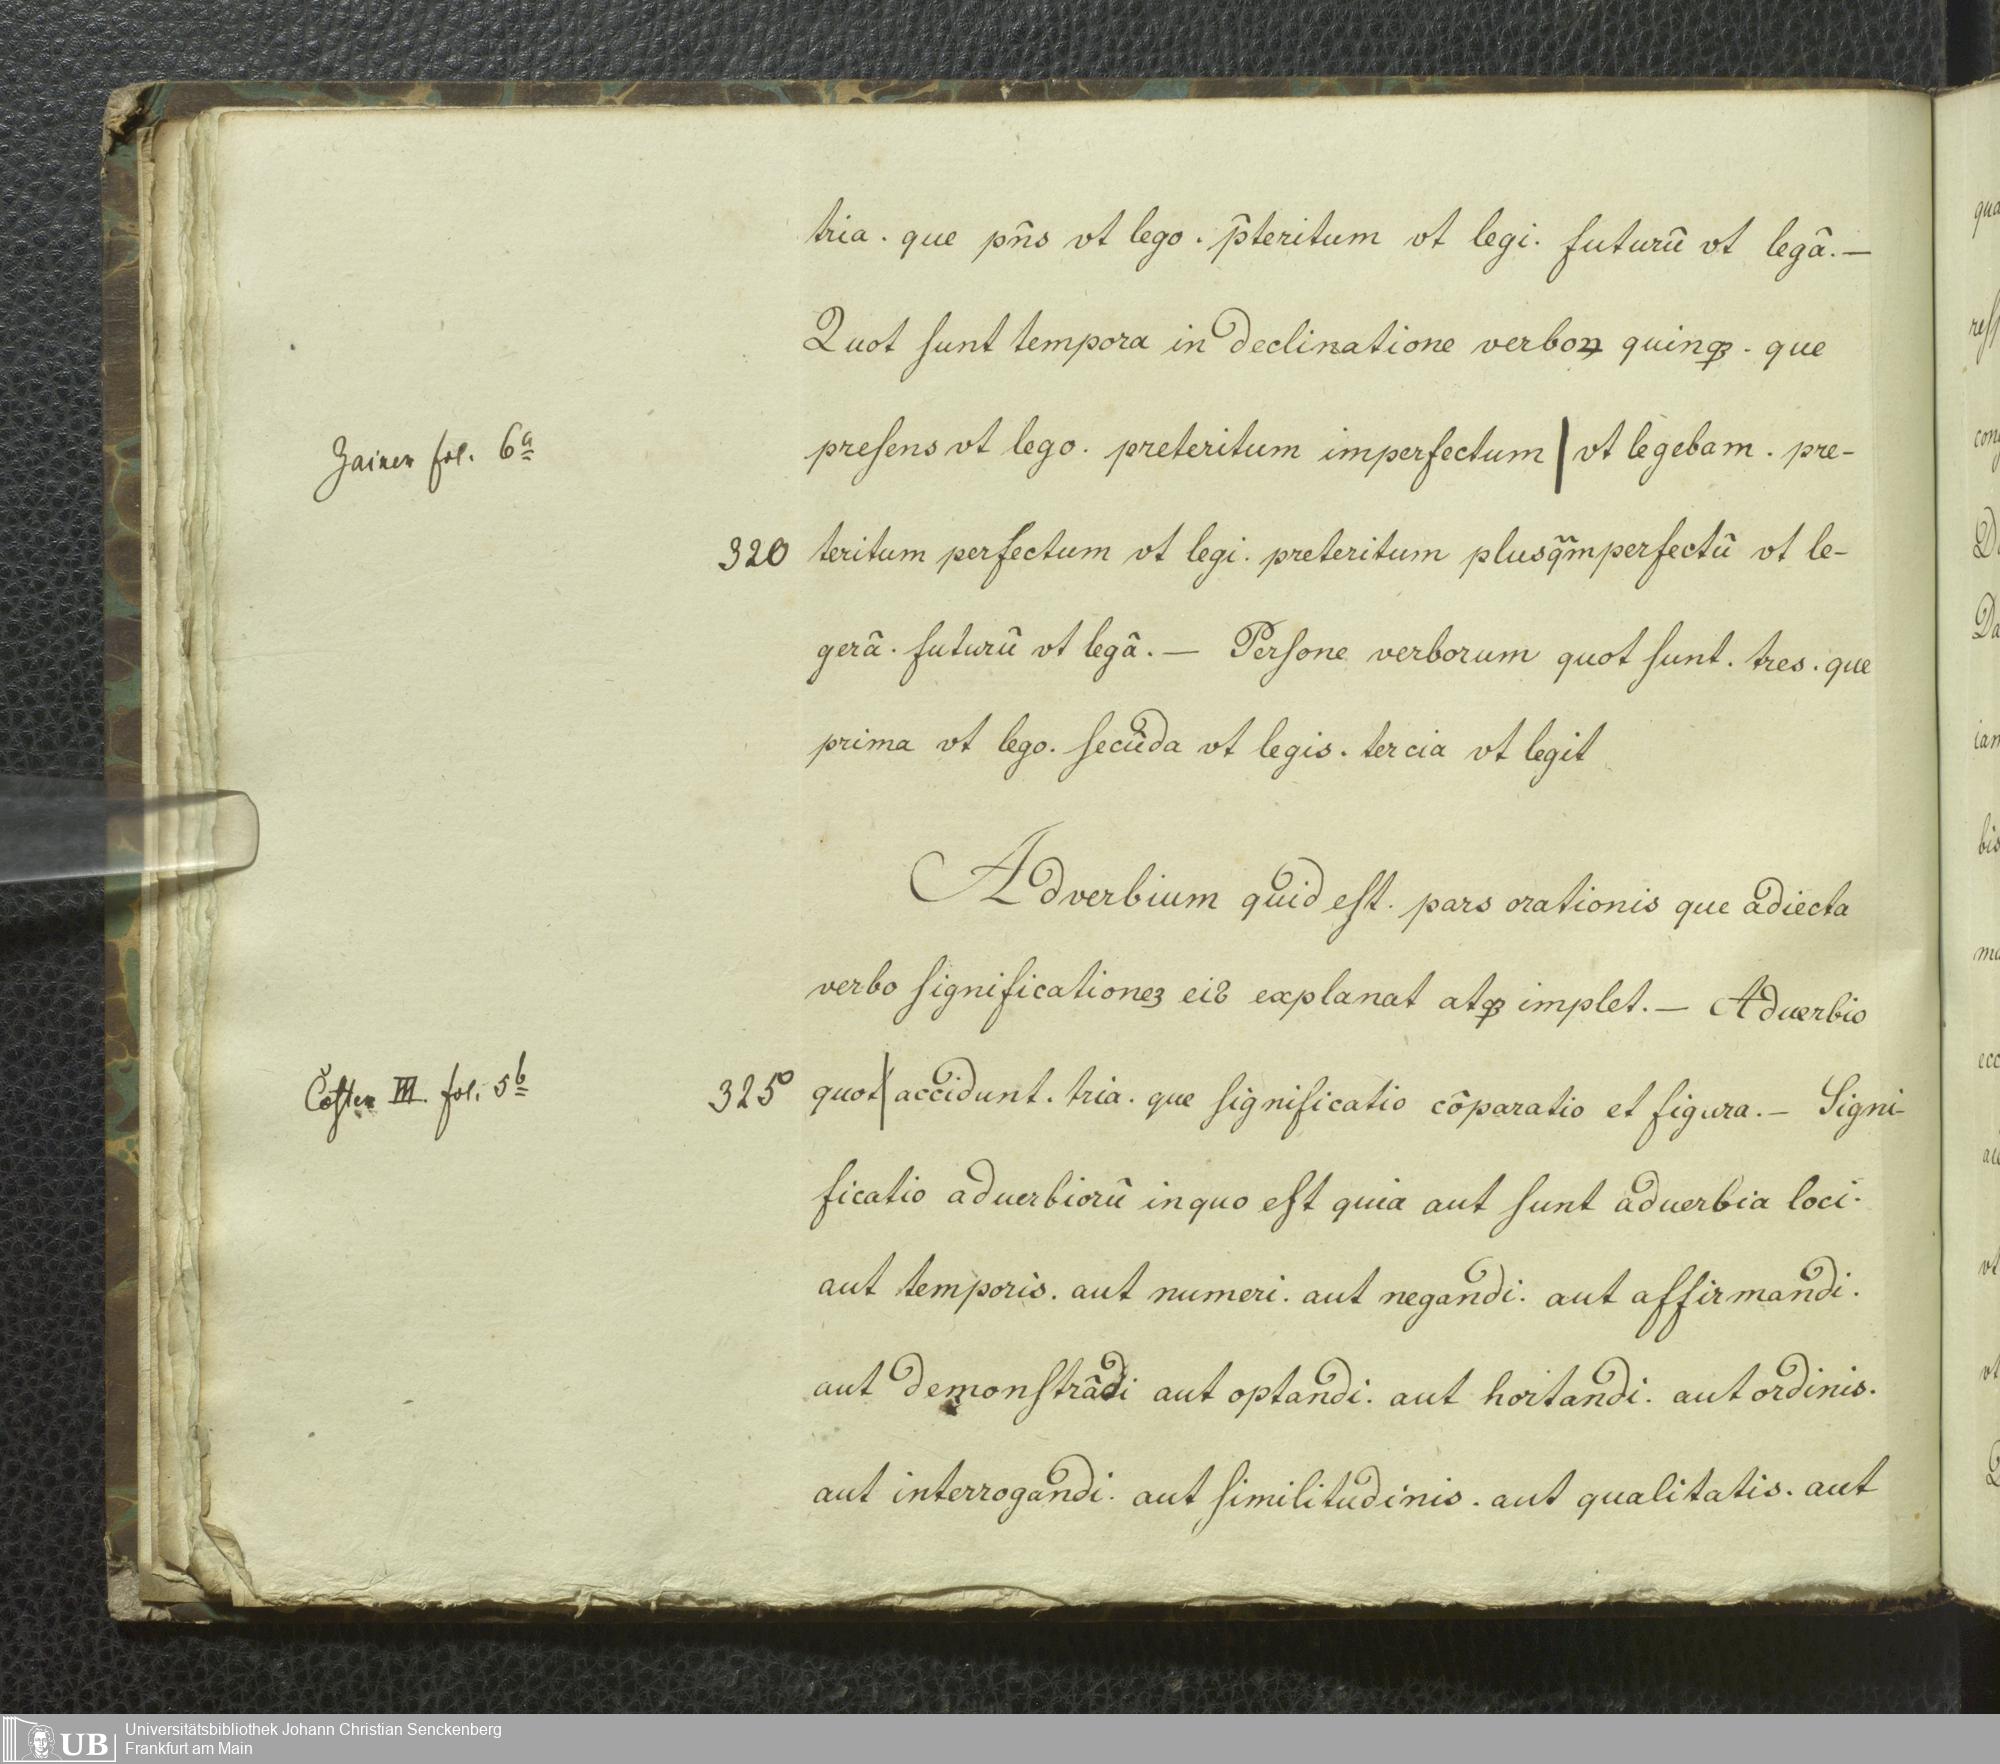 tria. que pn̄s vt lego. p̄teritum vt legi. futurū vt legā. —
Quot ſunt tempora in declinatione verboꝝ quinqꝫ. que
Zainer fol. 6a
preſens vt lego. preteritum imperfectum | vt legebam. pre-
320 teritum perfectum vt legi. preteritum plusq̄mperfectū vt le-
gerā. futurū vt legā. — Perſone verborum quot ſunt. tres. que
prima vt lego. ſecūda vt legis. tercia vt legit
Adverbium quid eſt. pars orationis que adiecta
verbo ſignificationeꝫ ei8 explanat atqꝫ implet. — Aduerbio
Coſter III. fol. 5b
325 quot | accidunt. tria. que ſignificatio cōparatio et figura. — Signi-
ficatio aduerbiorū in quo eſt quia aut ſunt aduerbia loci.
aut temporis. aut numeri. aut negandi. aut affirmandi.
aut demonſtrādi aut optandi. aut hortandi. aut ordinis.
aut interrogandi. aut ſimilitudinis. aut qualitatis. aut
UB Universitätsbibliothek Johann Christian Senckenberg
Frankfurt am Main